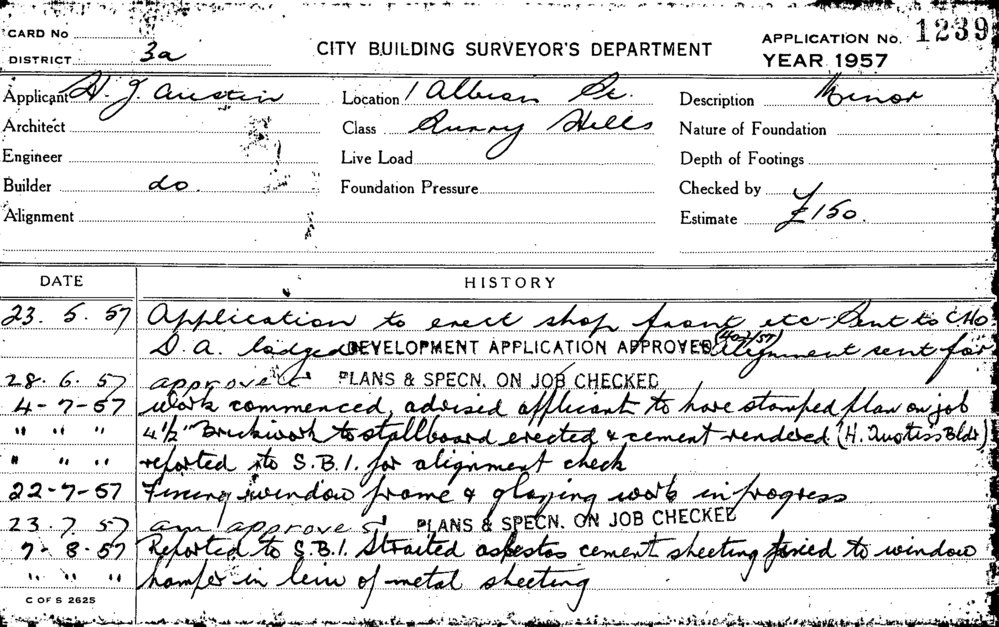 CARD No
DISTRICT 3a
CITY BUILDING SURVEYOR'S DEPARTMENT
APPLICATION No. 1239
YEAR 1957
Applicant H. J Austin
Location 1 Albion St.
Description Minor
Architect
Class Surry Hills
Nature of Foundation
Engineer
Live Load
Depth of Footings
Builder do.
Foundation Pressure
Checked by
Alignment
Estimate £150.
DATE
HISTORY
23. 5. 57 Application to erect shop front etc - Sent to CHO
D. A. lodged DEVELOPMENT APPLICATION APPROVED Alignment sent for
28. 6. 57 approved PLANS & SPECN. ON JOB CHECKED
4-7-57 Work commenced, advised applicant to have stamped plan on job
" " " 4½" Brickwork to stallboard erected & cement rendered (H. Bldr)
" " " reported to S.B.I. for alignment check
22-7-57 Fixing window frame & glazing work in progress
23. 7. 57 approved PLANS & SPECN. ON JOB CHECKED
7-8-57 Reported to S.B.I. Straited asbestos cement sheeting fixed to window
" " " hamper in leiu of metal sheeting
C OF S 2625